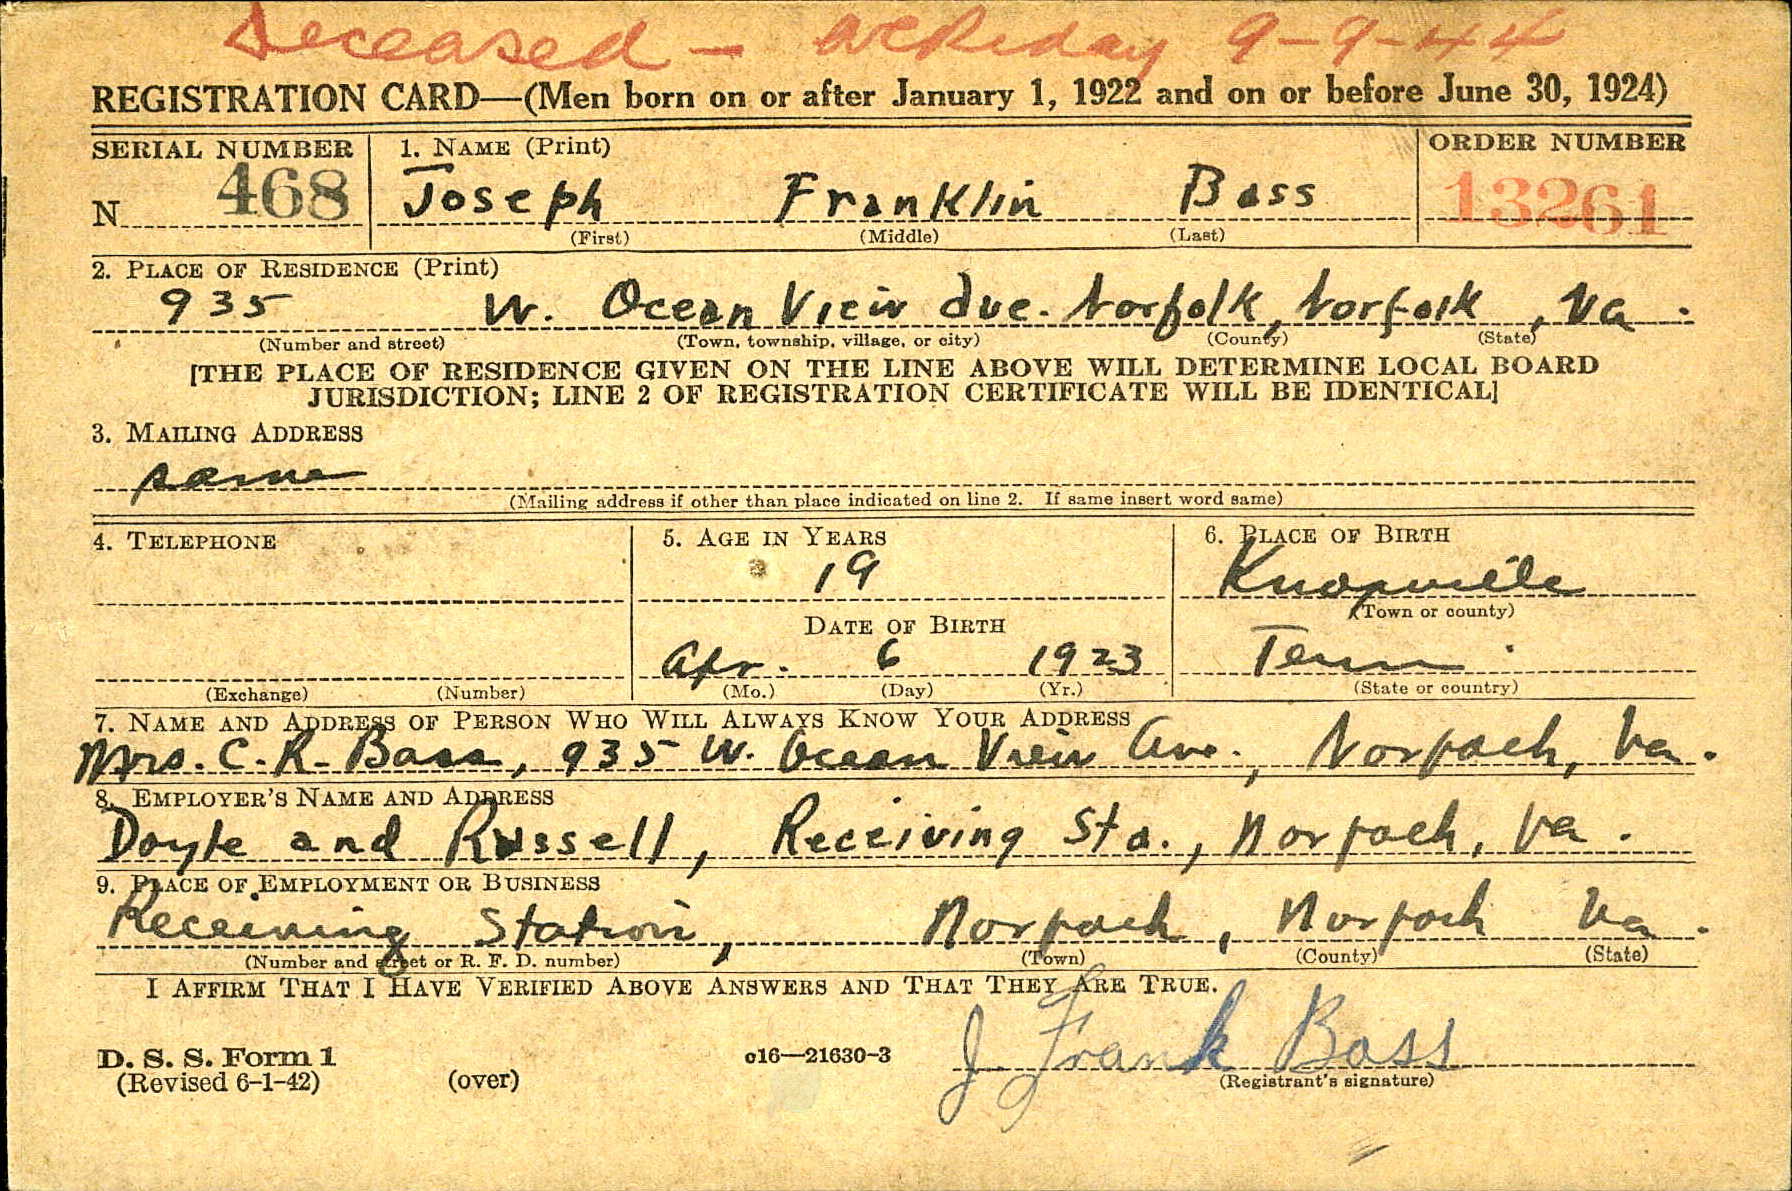 Deceased - 9-9-44
REGISTRATION CARD—(Men born on or after January 1, 1922 and on or before June 30, 1924)
SERIAL NUMBER 1. NAME (Print) ORDER NUMBER
N 468 Joseph Franklin Bass 13261
(First) (Middle) (Last)
2. PLACE OF RESIDENCE (Print)
935 W. Ocean View Ave. Norfolk, Norfolk, Va.
(Number and street) (Town, township, village, or city) (County) (State)
[THE PLACE OF RESIDENCE GIVEN ON THE LINE ABOVE WILL DETERMINE LOCAL BOARD
JURISDICTION; LINE 2 OF REGISTRATION CERTIFICATE WILL BE IDENTICAL]
3. MAILING ADDRESS
same
(Mailing address if other than place indicated on line 2. If same insert word same)
4. TELEPHONE 5. AGE IN YEARS 6. PLACE OF BIRTH
19 Knoxville
(Town or county)
DATE OF BIRTH
Apr. 6 1923 Tenn.
(Exchange) (Number) (Mo.) (Day) (Yr.) (State or country)
7. NAME AND ADDRESS OF PERSON WHO WILL ALWAYS KNOW YOUR ADDRESS
Mrs. C. R. Bass, 935 W. Ocean View Ave., Norfolk, Va.
8. EMPLOYER'S NAME AND ADDRESS
Doyle and Russell, Receiving Sta., Norfolk, Va.
9. PLACE OF EMPLOYMENT OR BUSINESS
Receiving Station, Norfolk, Norfolk Va.
(Number and street or R. F. D. number) (Town) (County) (State)
I AFFIRM THAT I HAVE VERIFIED ABOVE ANSWERS AND THAT THEY ARE TRUE.
D. S. S. Form 1 c16—21630-3 J. Frank Bass
(Revised 6-1-42) (over) (Registrant's signature)